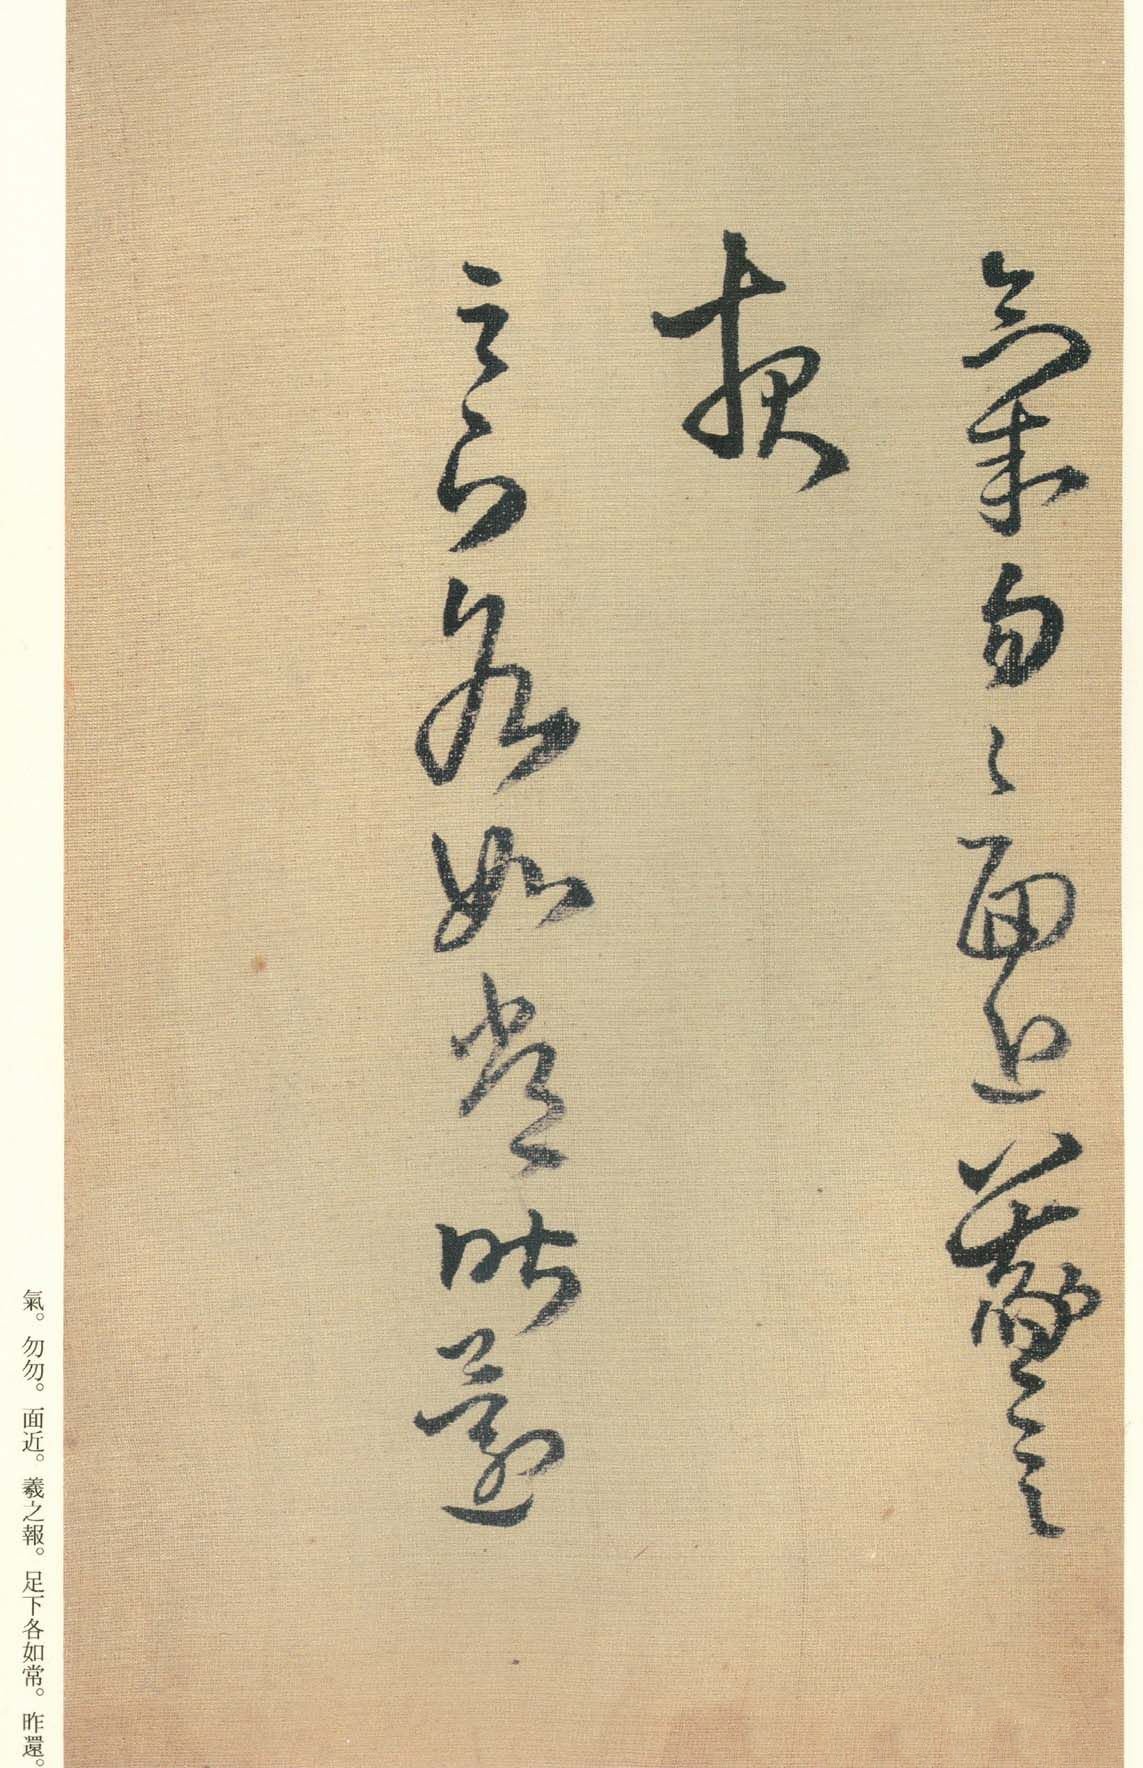 氣勿々面近羲之
報
足下各如常昨還
氣。勿勿。面近。羲之報。足下各如常。昨還。